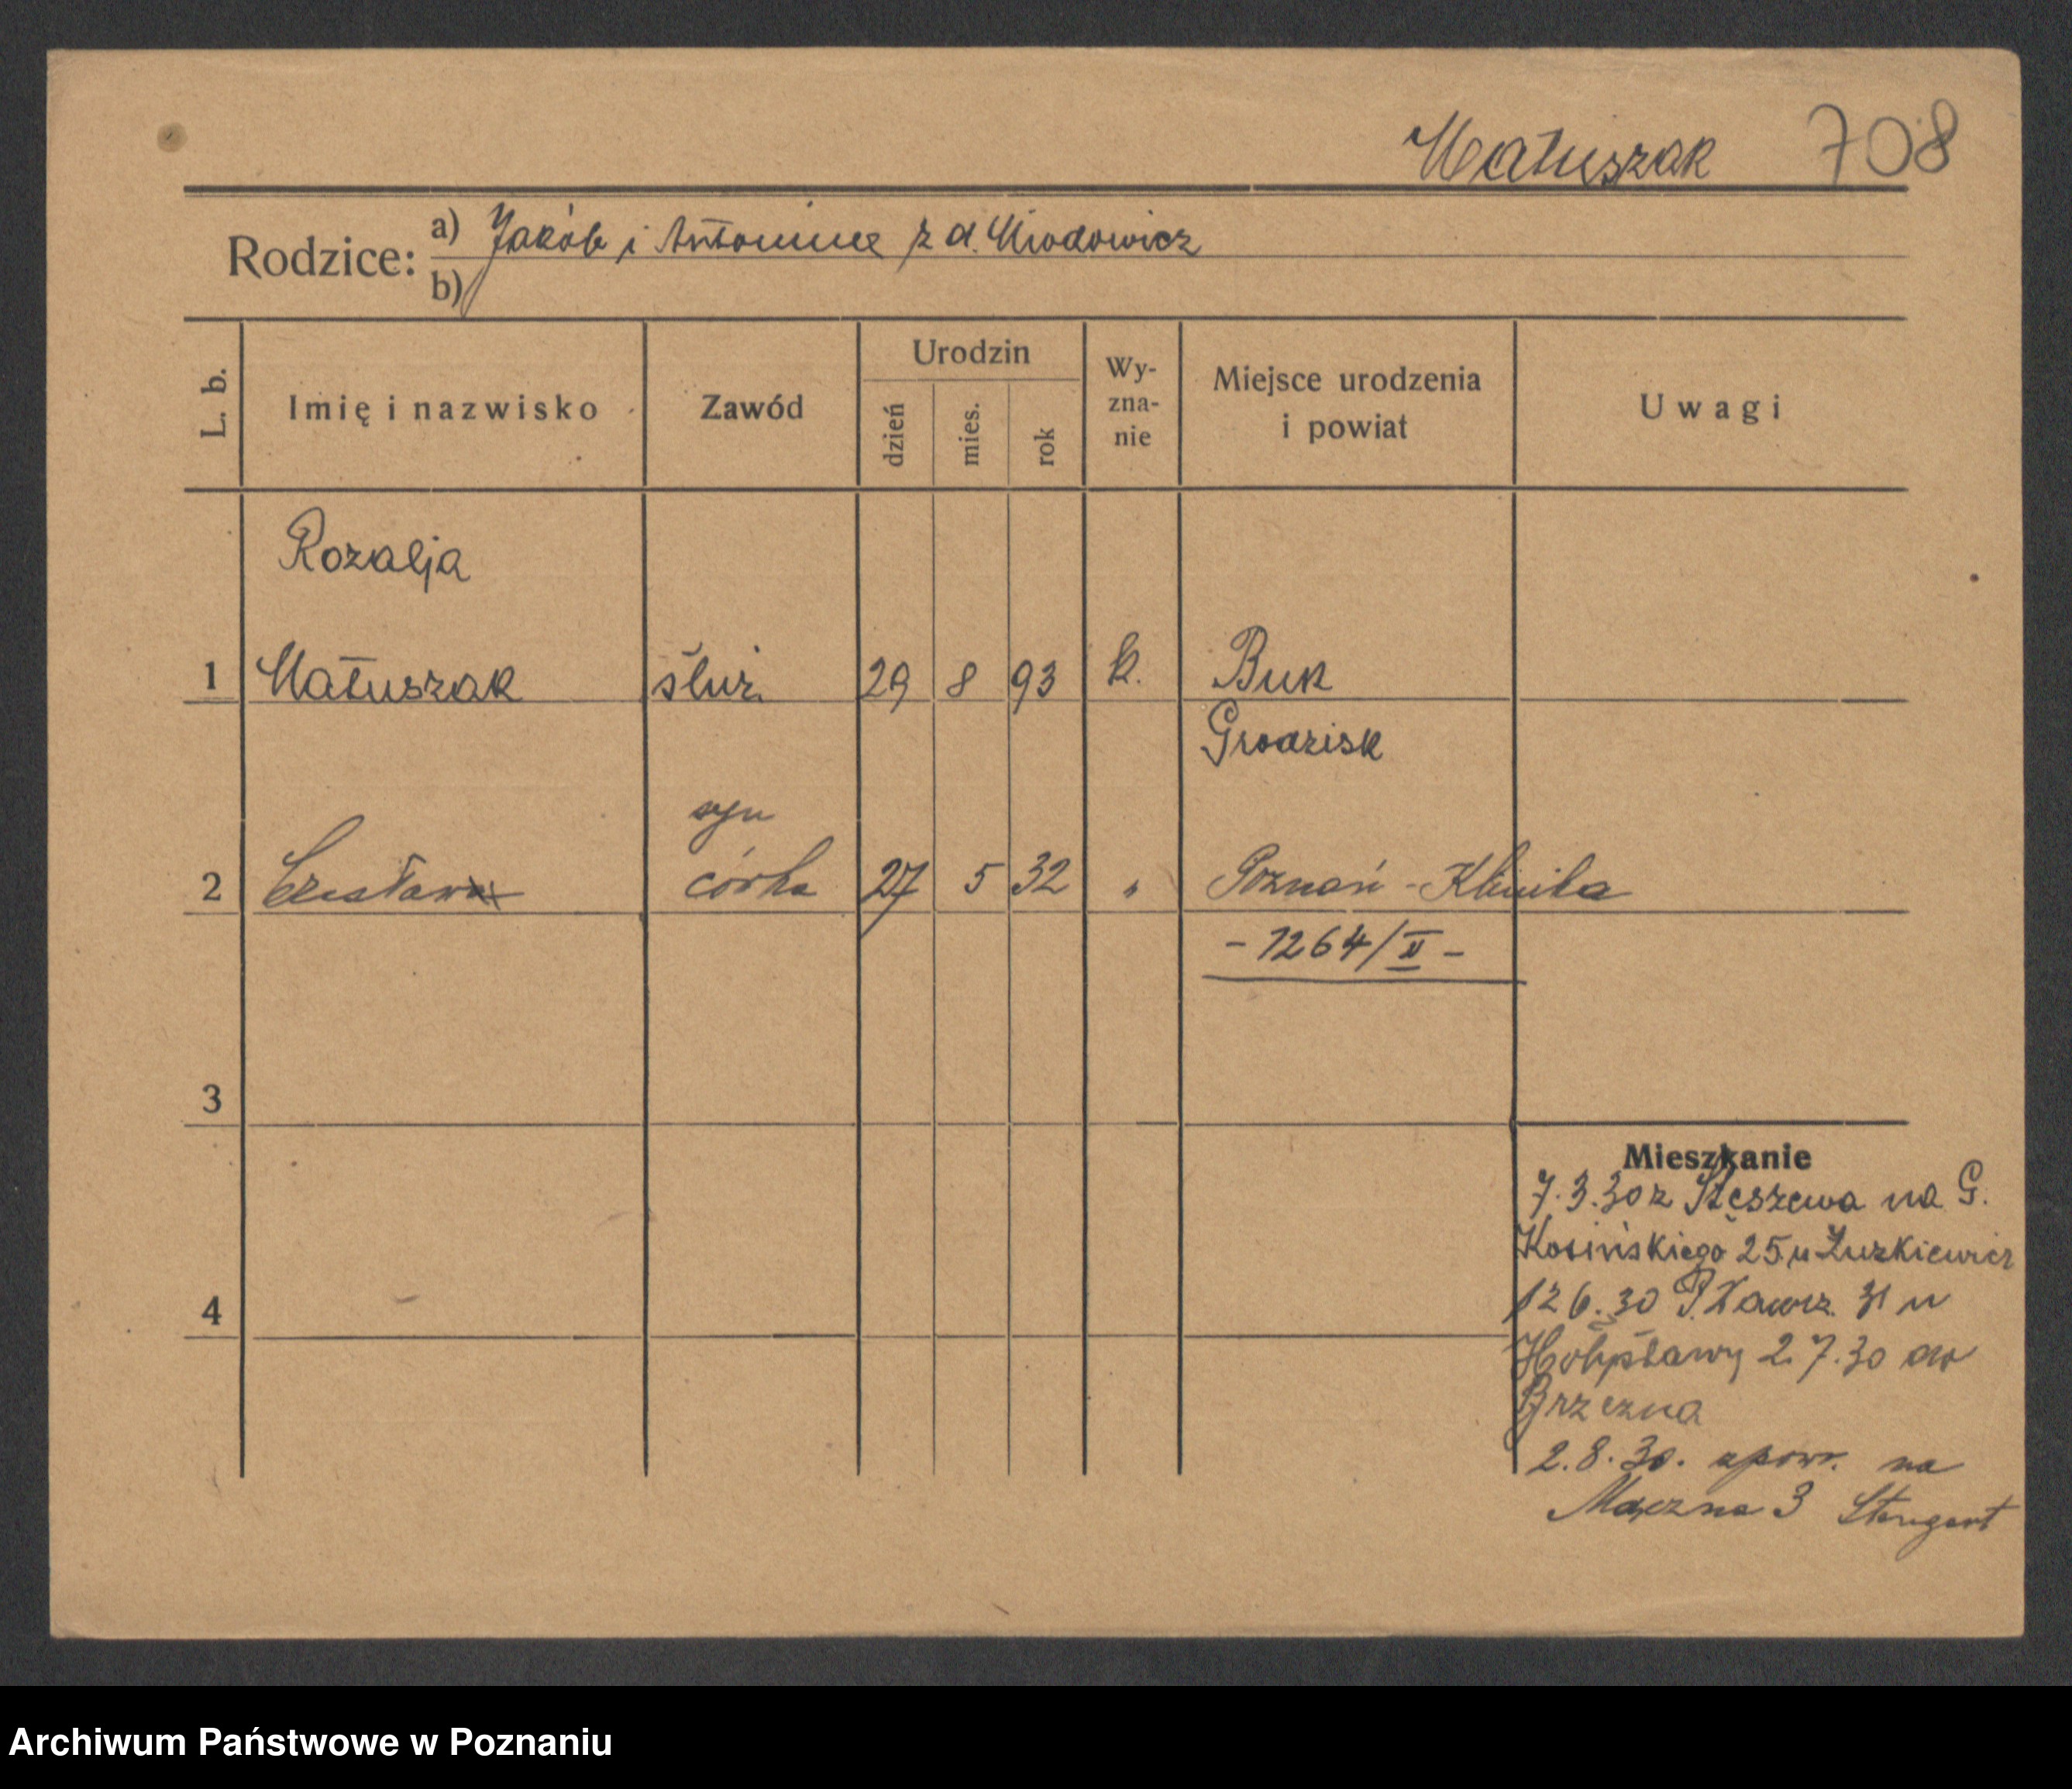 Matuszak 708
Rodzice: a) Jakób i Antonina z d. Miodowicz
b)
L. b. Imię i nazwisko Zawód Urodzin dzień mies. rok Wy-zna-nie Miejsce urodzenia i powiat Uwagi
Rozalja
1 Matuszak służ. 29 8 93 k. Buk
Grodzisk
syn
2 Czesława córka 27 5 32 " Poznań - Klinika
- 1264/II -
3
Mieszkanie
7.3.30 z Stęszewa na G.
Kosińskiego 25 u Żurkiewicz
4
12 6.30 P. Wawrz. 31 u
2.7.30 do
2.8.30. spowr. na
Mączna 3
Archiwum Państwowe w Poznaniu